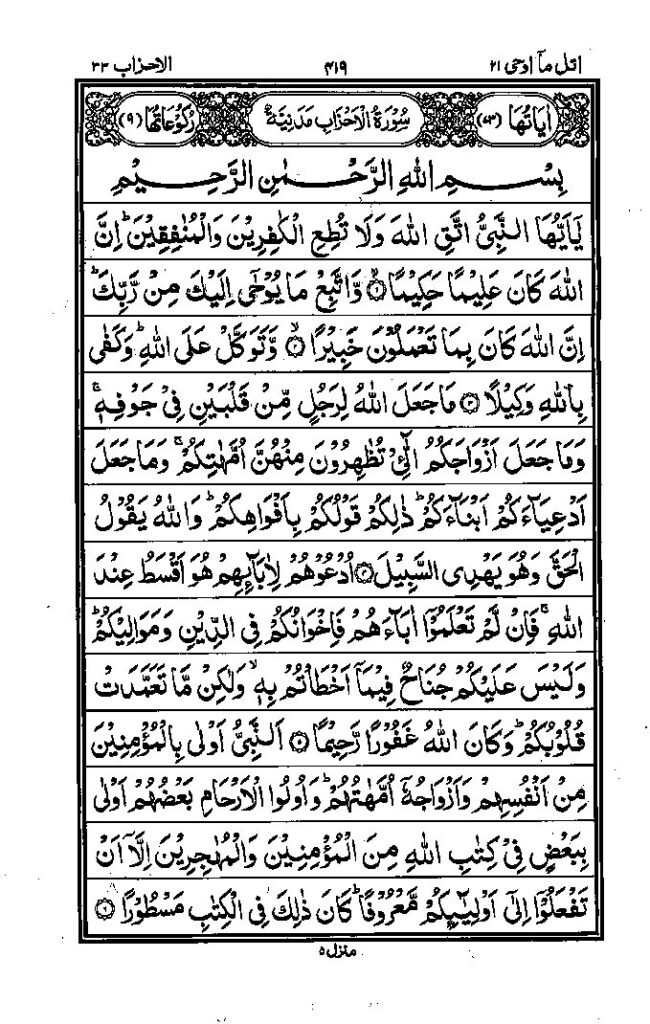 اتل مآ اوحی ٢١ ۴١٩ الاحزاب ٣٣
اٰیَاتُهَا (٧٣) سُوْرَةُ الْاَحْزَابِ مَدَنِیَّةٌ رُكُوْعَاتُهَا (٩)
بِسْمِ اللهِ الرَّحْمٰنِ الرَّحِیْمِ
یٰۤاَیُّهَا النَّبِیُّ اتَّقِ اللهَ وَلَا تُطِعِ الْكٰفِرِیْنَ وَالْمُنٰفِقِیْنَ ؕ اِنَّ
اللهَ كَانَ عَلِیْمًا حَكِیْمًا ۙ﴿١﴾ وَّاتَّبِعْ مَا یُوْحٰۤی اِلَیْكَ مِنْ رَّبِّكَ ؕ
اِنَّ اللهَ كَانَ بِمَا تَعْمَلُوْنَ خَبِیْرًا ۙ﴿٢﴾ وَّتَوَكَّلْ عَلَی اللهِ ؕ وَكَفٰی
بِاللهِ وَكِیْلًا ﴿٣﴾ مَا جَعَلَ اللهُ لِرَجُلٍ مِّنْ قَلْبَیْنِ فِیْ جَوْفِهٖ ۚ
وَمَا جَعَلَ اَزْوَاجَكُمُ الّٰٓـِٔیْ تُظٰهِرُوْنَ مِنْهُنَّ اُمَّهٰتِكُمْ ۚ وَمَا جَعَلَ
اَدْعِیَآءَكُمْ اَبْنَآءَكُمْ ؕ ذٰلِكُمْ قَوْلُكُمْ بِاَفْوَاهِكُمْ ؕ وَاللهُ یَقُوْلُ
الْحَقَّ وَهُوَ یَهْدِی السَّبِیْلَ ﴿٤﴾ اُدْعُوْهُمْ لِاٰبَآئِهِمْ هُوَ اَقْسَطُ عِنْدَ
اللهِ ۚ فَاِنْ لَّمْ تَعْلَمُوْۤا اٰبَآءَهُمْ فَاِخْوَانُكُمْ فِی الدِّیْنِ وَمَوَالِیْكُمْ ؕ
وَلَیْسَ عَلَیْكُمْ جُنَاحٌ فِیْمَاۤ اَخْطَاْتُمْ بِهٖ ۙ وَلٰكِنْ مَّا تَعَمَّدَتْ
قُلُوْبُكُمْ ؕ وَكَانَ اللهُ غَفُوْرًا رَّحِیْمًا ﴿٥﴾ اَلنَّبِیُّ اَوْلٰی بِالْمُؤْمِنِیْنَ
مِنْ اَنْفُسِهِمْ وَاَزْوَاجُهٗۤ اُمَّهٰتُهُمْ ؕ وَاُولُوا الْاَرْحَامِ بَعْضُهُمْ اَوْلٰی
بِبَعْضٍ فِیْ كِتٰبِ اللهِ مِنَ الْمُؤْمِنِیْنَ وَالْمُهٰجِرِیْنَ اِلَّاۤ اَنْ
تَفْعَلُوْۤا اِلٰۤی اَوْلِیٰٓئِكُمْ مَّعْرُوْفًا ؕ كَانَ ذٰلِكَ فِی الْكِتٰبِ مَسْطُوْرًا ﴿٦﴾
منزل ٥